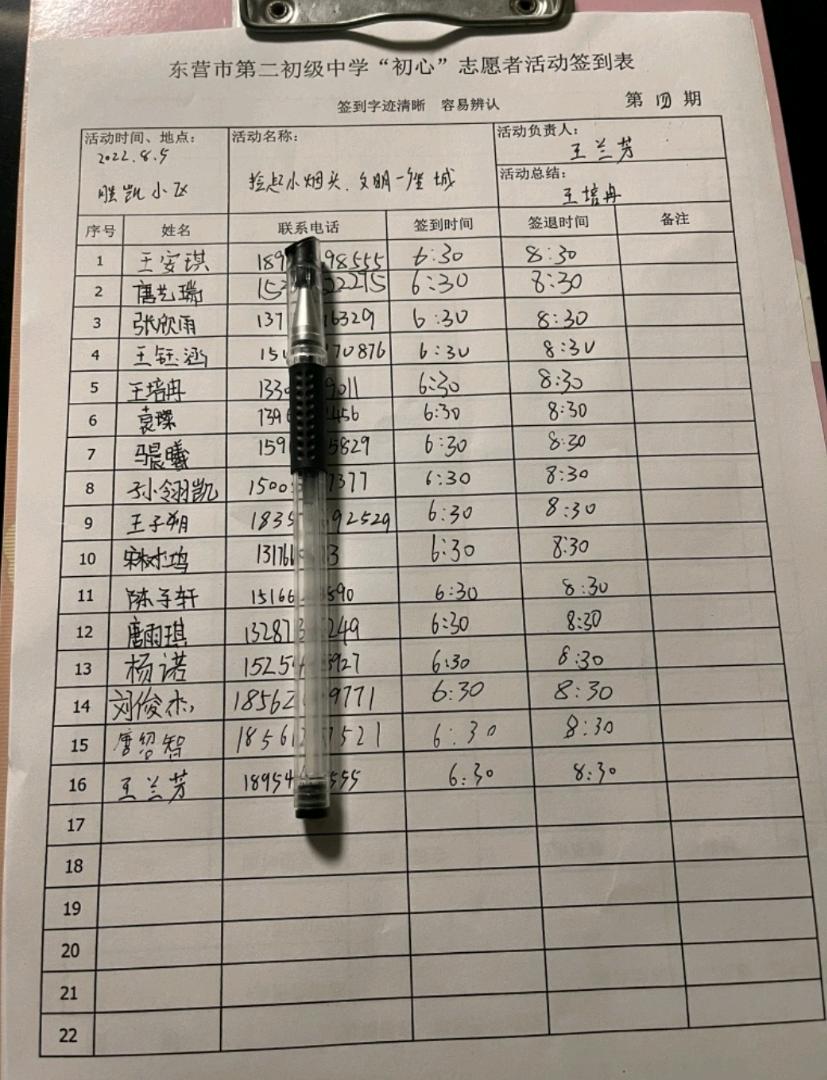 东营市第二初级中学“初心”志愿者活动签到表
签到字迹清晰 容易辨认 第 四 期
活动时间、地点： 活动名称： 活动负责人：
2022.8.5 王兰芳
胜凯小区 捡点小烟头、文明一座城 活动总结：
王培冉
序号 姓名 联系电话 签到时间 签退时间 备注
1 王安琪 189 98555 6:30 8:30
2 唐艺瑞 153 22275 6:30 8:30
3 张欣雨 137 16329 6:30 8:30
4 王钰涵 150 70876 6:30 8:30
5 王培冉 1330 9011 6:30 8:30
6 袁璨 139 456 6:30 8:30
7 马晨曦 159 5829 6:30 8:30
8 孙翎凯 1500 7377 6:30 8:30
9 王子朔 1835 92529 6:30 8:30
10 13176 3 6:30 8:30
11 陈子轩 15166 590 6:30 8:30
12 唐雨琪 13287 249 6:30 8:30
13 杨诺 15254 927 6:30 8:30
14 刘俊杰 18562 9771 6:30 8:30
15 唐绍智 18561 1521 6:30 8:30
16 王兰芳 18954 555 6:30 8:30
17
18
19
20
21
22